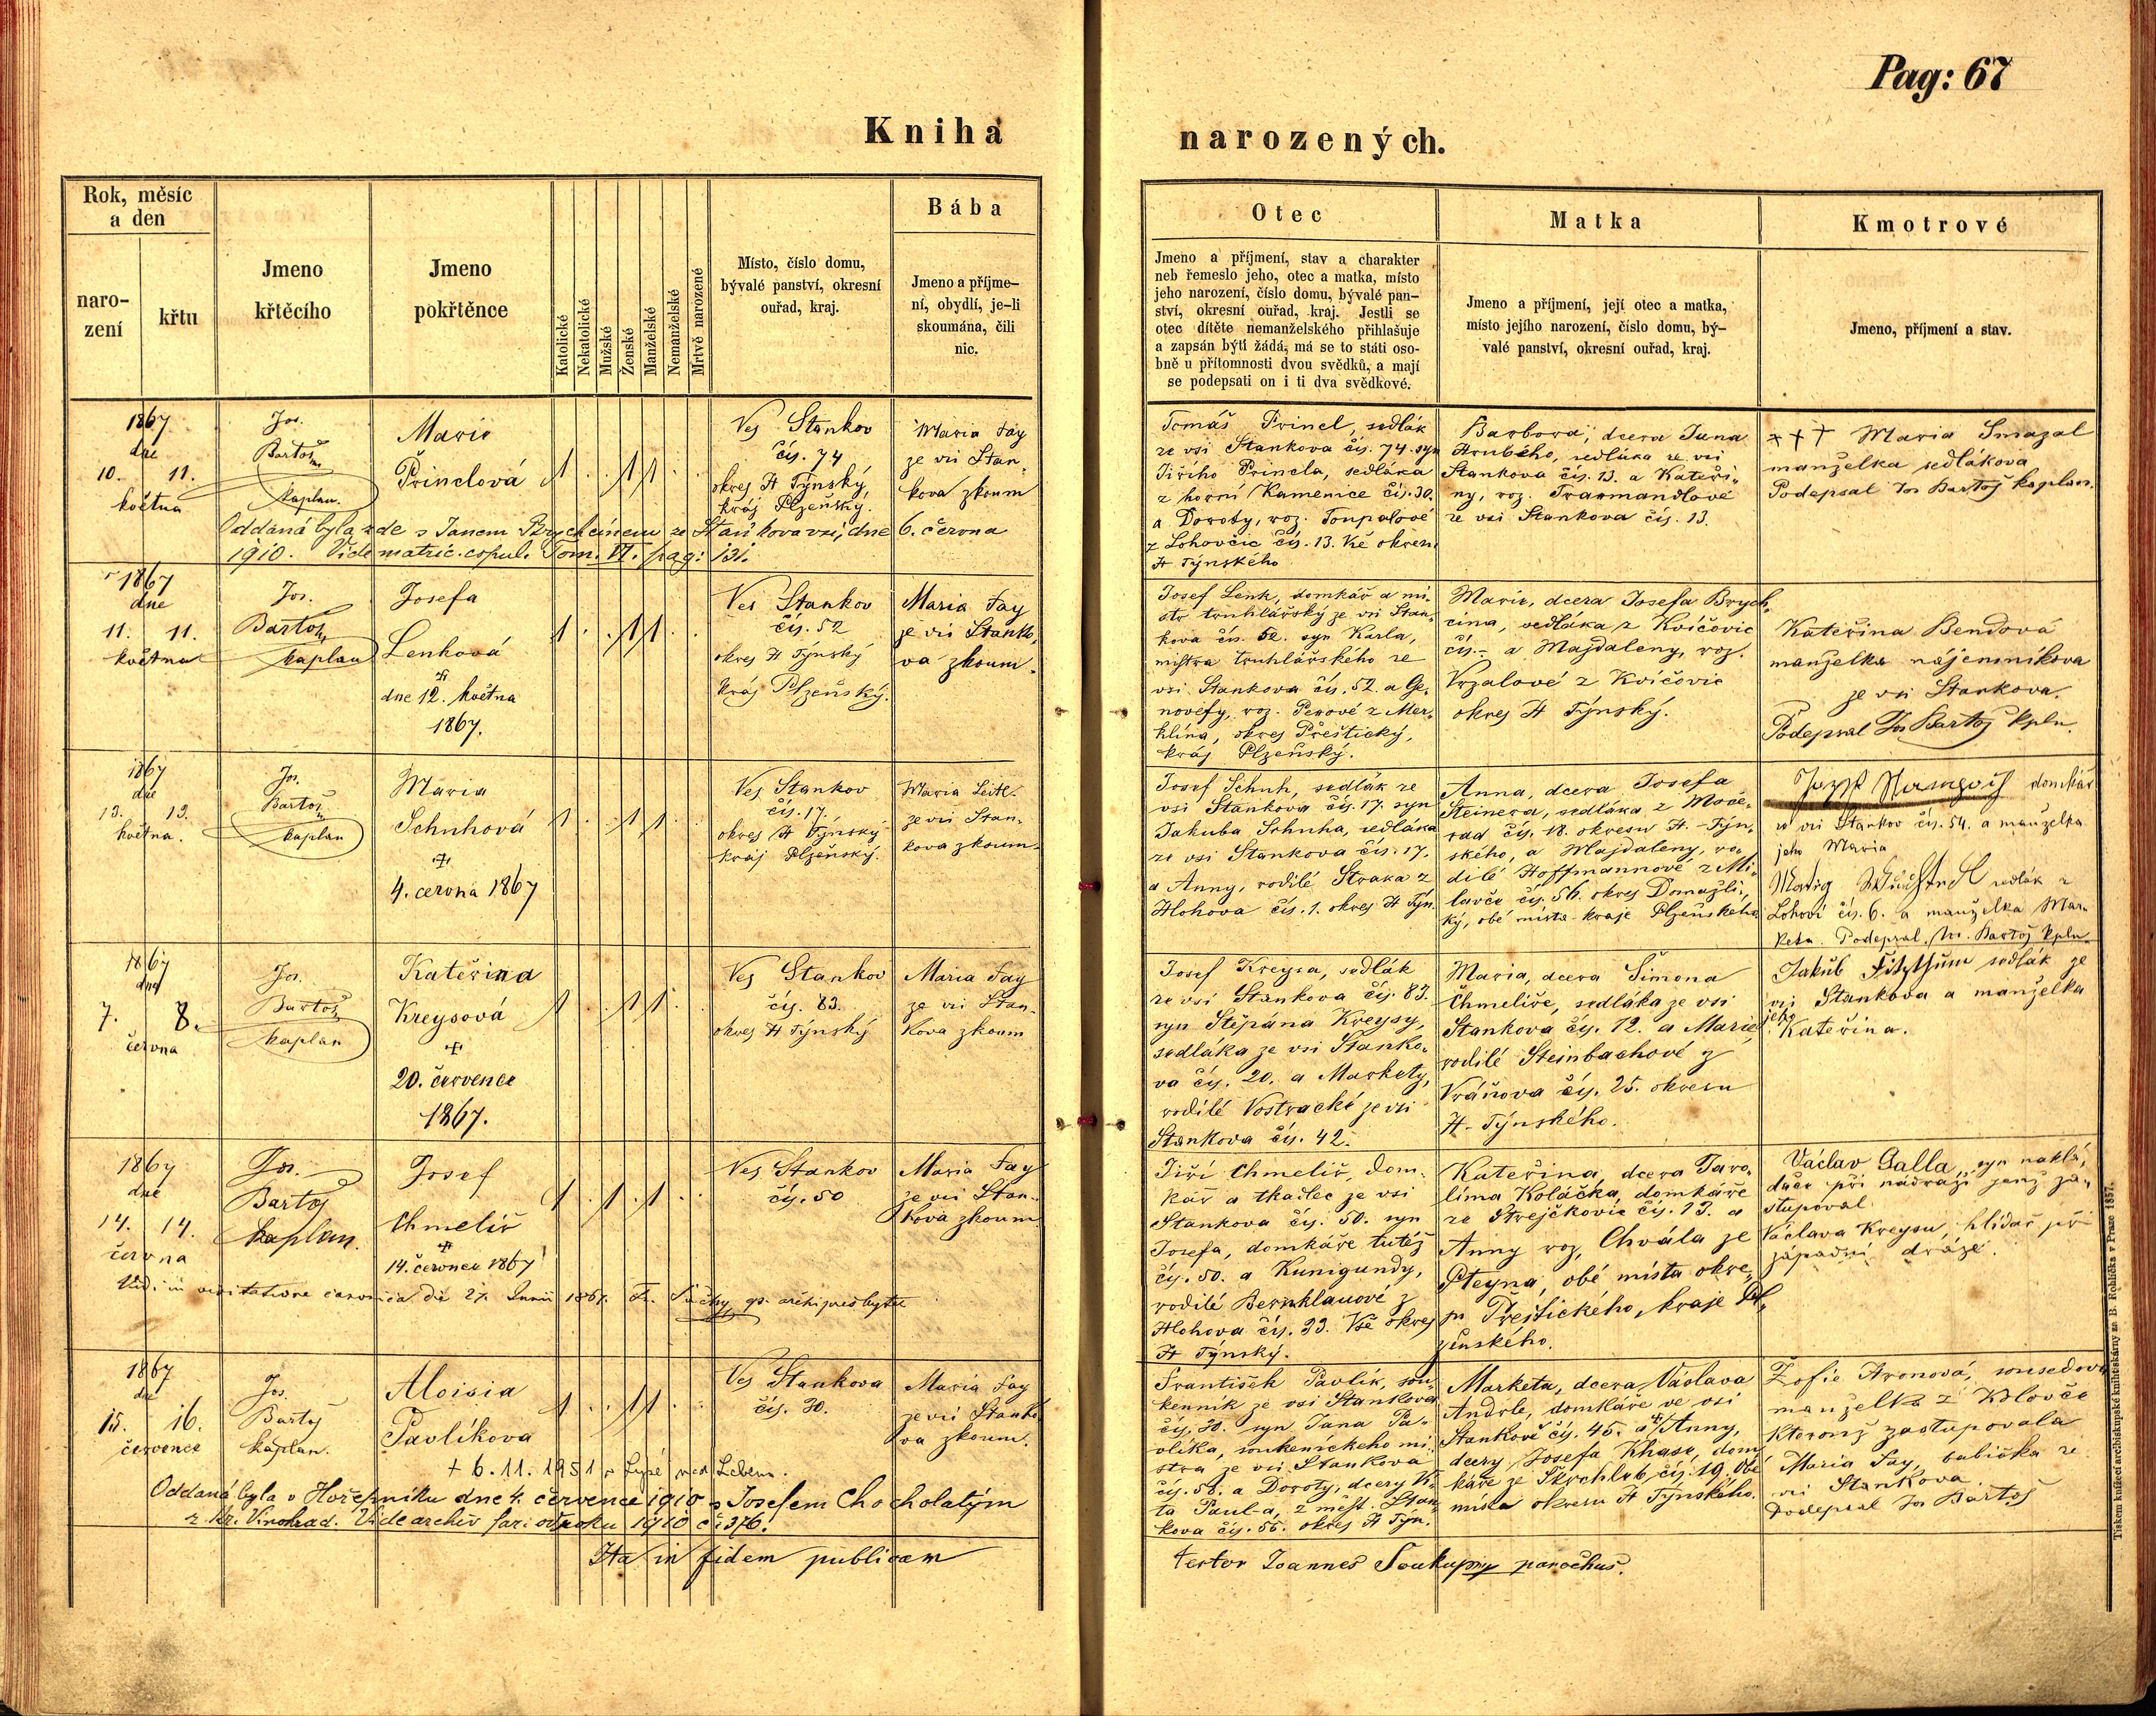 Pag: 67
Kniha narozených.
Rok, měsíc
a den
naro-
zení
křtu
Jmeno
křtěcího
Jmeno
pokřtěnce
Katolické
Nekatolické
Mužské
Ženské
Manželské
Nemanželské
Mrtvě narozené
Místo, číslo domu,
bývalé panství, okresní
ouřad, kraj.
Bába
Jmeno a příjme-
ní, obydlí, je-li
skoumána, čili
nic.
Otec
Jmeno a příjmení, stav a charakter
neb řemeslo jeho, otec a matka, místo
jeho narození, číslo domu, bývalé pan-
ství, okresní ouřad, kraj. Jestli se
otec dítěte nemanželského přihlašuje
a zapsán býti žádá, má se to státi oso-
bně u přítomnosti dvou svědků, a mají
se podepsati on i ti dva svědkové.
Matka
Jmeno a příjmení, její otec a matka,
místo jejího narození, číslo domu, bý-
valé panství, okresní ouřad, kraj.
Kmotrové
Jmeno, příjmení a stav.
1867
dne
10. 11.
května
Jos.
Bartoš
kaplan.
Marie
Princlová
1 . . 1 1 . .
Ves Stankov
čís. 74
okres H Týnský,
kráj Plzeňský.
Maria Fay
ze vsi Stan-
kova zkoum
Tomáš Princl, sedlák
ze vsi Stankova čís. 74. syn
Jiřího Princla, sedláka
z horní Kamenice čís. 30.
a Doroty, roz. Toupalové
z Lohovčic čís. 13. vše okresu
H Týnského
Barbora, dcera Jana
Hrubého, sedláka ze vsi
Stankova čís. 13. a Kateři-
ny, roz. Trarmandlové
ze vsi Stankova čís. 13.
††† Maria Smazal
manželka sedlákova
Podepsal Jos Bartoš kaplan.
Oddaná byla zde s Janem Brychcínem ze Staňkova vsi, dne 6. června
1910. Vide matric. copul. Tom. VI. pag: 131.
1867
dne
11. 11.
května
Jos.
Bartoš
kaplan
Josefa
Lenková
dne 12. května
1867.
1 . . 1 1 . .
Ves Stankov
čís. 52
okres H Týnský
kráj Plzeňský.
Maria Fay
ze vsi Stanko-
va zkoum.
Josef Lenk, domkář a mi-
str truhlářský ze vsi Stan-
kova čís. 52. syn Karla,
mistra truhlářského ze
vsi Stankova čís. 52. a Ge-
novefy, roz. Perové z Mer-
klína, okres Přeštický,
kráj Plzeňský.
Marie, dcera Josefa Brych-
cína, sedláka z Kvíčovic
čís. – a Majdaleny, roz.
Vrzalové z Kvíčovic
okres H Týnský.
Kateřina Bendová
manželka nájemníkova
ze vsi Stankova.
Podepsal Jos Bartoš kpln.
1867
dne
13. 13.
května.
Jos.
Bartoš
kaplan
Maria
Schuhová
4. června 1867
1 . . 1 1 . .
Ves Stankov
čís. 17.
okres H Týnský
kráj Plzeňský.
Maria Leitl.
ze vsi Stan-
kova zkoum.
Josef Schuh, sedlák ze
vsi Stankova čís. 17. syn
Jakuba Schuha, sedláka
ze vsi Stankova čís. 17.
a Anny, rodilé Straka z
Hlohova čís. 1. okres H Týn.
Anna, dcera Josefa
Steinera, sedláka z Move-
rad čís. 18. okresu H.-Týn-
ského, a Majdaleny, ro-
dilé Hoffmannové z Mi-
lavče čís. 56. okres Domažli-
ký, obě místa kraje Plzeňského
domkář
ze vsi Stankov čís. 54. a manželka
jeho Maria
sedlák z
Lohoví čís. 6. a manželka Mar-
keta. Podepsal Jos. Bartoš kpln.
1867
dne
7. 8.
června
Jos.
Bartoš
kaplan
Kateřina
Kreysová
20. července
1867.
1 . . 1 1 .
Ves Stankov
čís. 83.
okres H Týnský
Maria Fay
ze vsi Stan-
kova zkoum
Josef Kreysa, sedlák
ze vsi Stankova čís. 83.
syn Štěpána Kreysy,
sedláka ze vsi Stanko-
va čís. 20. a Markety,
rodilé Vostracké ze vsi
Stankova čís. 42.
Maria, dcera Šimona
Chmelíře, sedláka ze vsi
Stankova čís. 12. a Marie,
rodilé Steinbachové z
Vráňova čís. 25. okresu
H-Týnského.
Jakub Fitzthum sedlák ze
vsi Stankova a manželka
jeho Kateřina.
1867
dne
14. 14.
června
Jos.
Bartoš
kaplan.
Josef
Chmelíř
14. července 1867
1 . 1 . 1 . .
Ves Stankov
čís. 50
Maria Fay
ze vsi Stan-
kova zkoum
Jiří Chmelíř, dom-
kář a tkadlec ze vsi
Stankova čís. 50. syn
Josefa, domkáře tutéž
čís. 50. a Kunigundy,
rodilé Bernklauové z
Hlohova čís. 33. Vše okres
H Týnský.
Kateřina, dcera Jaro-
líma Koláčka, domkáře
ze Strejčkovic čís. 13. a
Anny roz. Chvála ze
Pteyna, obě místa okre-
su Přeštického, kraje Pl-
zenského.
Václav Galla, syn naklá-
dače při nádraží jenž za-
stupoval
Václava Kreysu, hlídač při
západní dráze.
Vidi in visitatione canonica die 27. Junii 1867.
1867
dne
15. 16.
července
Jos.
Bartoš
kaplan.
Aloisia
Pavlíkova
1 . . 1 1 . .
Ves Stankova
čís. 30.
Maria Fay
ze vsi Stanko-
va zkoum.
František Pavlík, sou-
kenník ze vsi Stankova
čís. 30. syn Jana Pa-
vlíka, soukenického mi-
stra ze vsi Stankova
čís. 56. a Doroty, dcery Ví-
ta Paul-a, z měst. Stan-
kova čís. 55. okres H Týn.
Marketa, dcera Václava
Andrle, domkáře ve vsi
Stankově čís. 45. a Anny,
dcery Josefa Khase, dom-
káře ze Škrchleb, čís. 19. obě
místa okresu H Týnského.
Žofie Aronová, sousedova
manželka z Kolovče
kterouž zastupovala
Maria Fay, babička ze
vsi Stankova
Podepsal Jos Bartoš
+ 6.11.1951 v Lysé nad Labem.
Oddaná byla v Hořepníku dne 4. července 1910 s Josefem Chocholatým
z Kr. Vinohrad. Vide archiv far: od roku 1910 č. 376.
Ita in fidem publicam testor Joannes Soukup parochus.
Tiskem knížecí arcibiskupské knihtiskárny za B. Rohlíčka v Praze 1857.